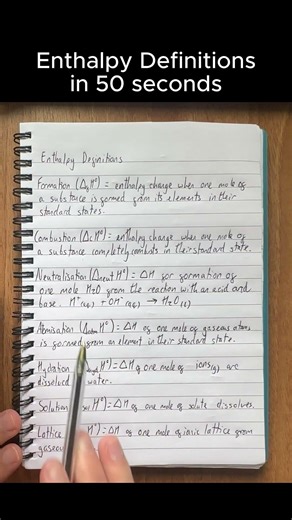 Enthalpy Definitions
in 50 seconds
Enthalpy Definitions
Formation (ΔfH°) = enthalpy change when one mole of
a substance is formed from its elements in their
standard states.
Combustion (ΔcH°) = enthalpy change when one mole of
a substance completely combusts in their standard state.
Neutralisation (ΔneutH°) = ΔH for formation of
one mole H2O from the reaction with an acid and
base. H+(aq) + OH-(aq) → H2O(l)
Atomisation (ΔatomH°) = ΔH of one mole of gaseous atoms
is formed from an element in their standard state.
Hydration H°) = ΔH of one mole of ions(g) are
dissolved water.
Solution H° = ΔH of one mole of solute dissolves.
Lattice H°) = ΔH of one mole of ionic lattice from
gaseous